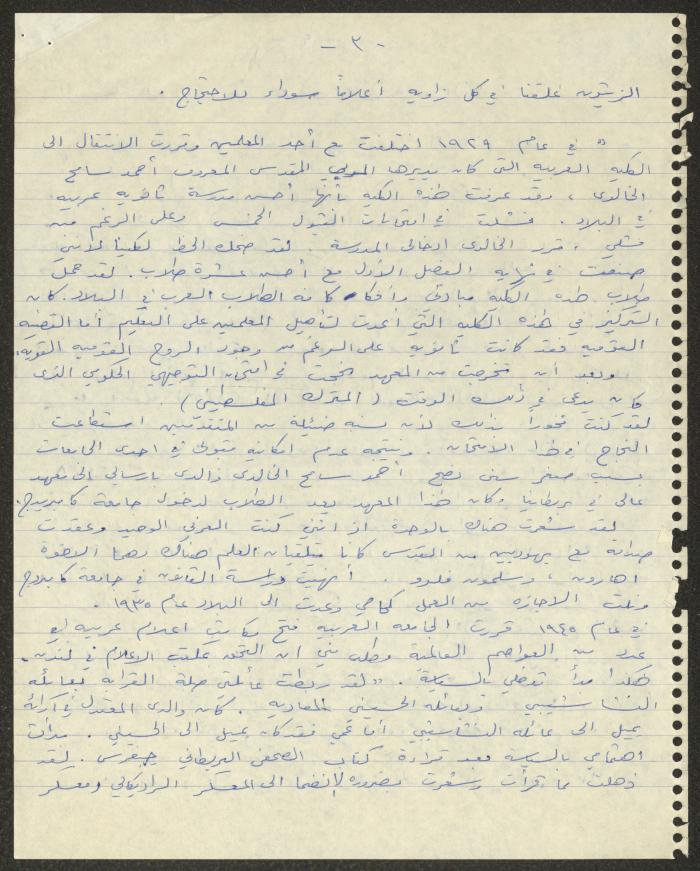 - ٣ -
الزيتون علقنا في كل زاويه أعلاماً سوداء للاحتجاج .
" في عام ١٩٢٩ اختلفت مع أحد المعلمين وقررت الانتقال الى
الكليه العربيه التي كان يديرها المربي المقدسي المعروف أحمد سامح
الخالدي ، وقد عرفت هذه الكليه بأنها أحسن مدرسة ثانويه عربيه
في البلاد . فشلت في امتحانات القبول الخمس وعلى الرغم من
فشلي ، قرر الخالدي ادخالي المدرسة . لقد ضحك الحظ لكلينا لأنني
صنفت في نهايه الفصل الأول مع أحسن عشرة طلاب . لقد حمل
طلاب هذه الكليه مبادئ وأفكار كافه الطلاب العرب في البلاد . كان
التركيز في هذه الكليه التي أعدت لتأهيل المعلمين على التعليم أما القضيه
القوميه فقد كانت ثانويه على الرغم من وجود الروح القوميه القويه .
وبعد أن تخرجت من المعهد نجحت في امتحان التوجيهي الحكومي الذي
كان يدعى في ذلك الوقت ( المترك الفلسطيني ) .
لقد كنت فخوراً بذلك لأن نسبه ضئيلة من المتقدمين استطاعت
النجاح في هذا الامتحان . ونتيجه عدم امكانيه قبولي في احدى الجامعات
بسبب صغر سني نصح أحمد سامح الخالدي والدي بارسالي الى معهد
عالي في بريطانيا وكان هذا المعهد يعد الطلاب لدخول جامعة كامبريدج .
لقد شعرت هناك بالوحدة اذ انني كنت العربي الوحيد وعقدت
صداقة مع يهوديين من القدس كانا يتلقيان العلم هناك وهما الاخوة
اهارون ، وسلمون فلورو . أنهيت دراسة القانون في جامعة كامبردج
ونلت الاجازه من العمل كمحامي وعدت الى البلاد عام ١٩٣٥ .
في عام ١٩٤٥ قررت الجامعه العربيه فتح مكاتب اعلام عربيه في
عدد من العواصم العالمية وطلب مني ان التحق بمكتب الاعلام في لندن .
هكذا بدأ تدخلي بالسياسة . " لقد ربطت عائلتي صلة القرابه بعائله
النشاشيبي وبعائله الحسيني المعاديه . كان والدي المعتدل في آرائه
يميل الى عائله النشاشيبي أما عمي فقد كان يميل الى الحسيني . بدأت
اهتمامي بالسياسه بعد قراءة كتاب الصحفي البريطاني جيفرس . لقد
ذهلت مما قرأت وشعرت بضروره الإنضمام الى المعسكر الراديكالي ومعسكر